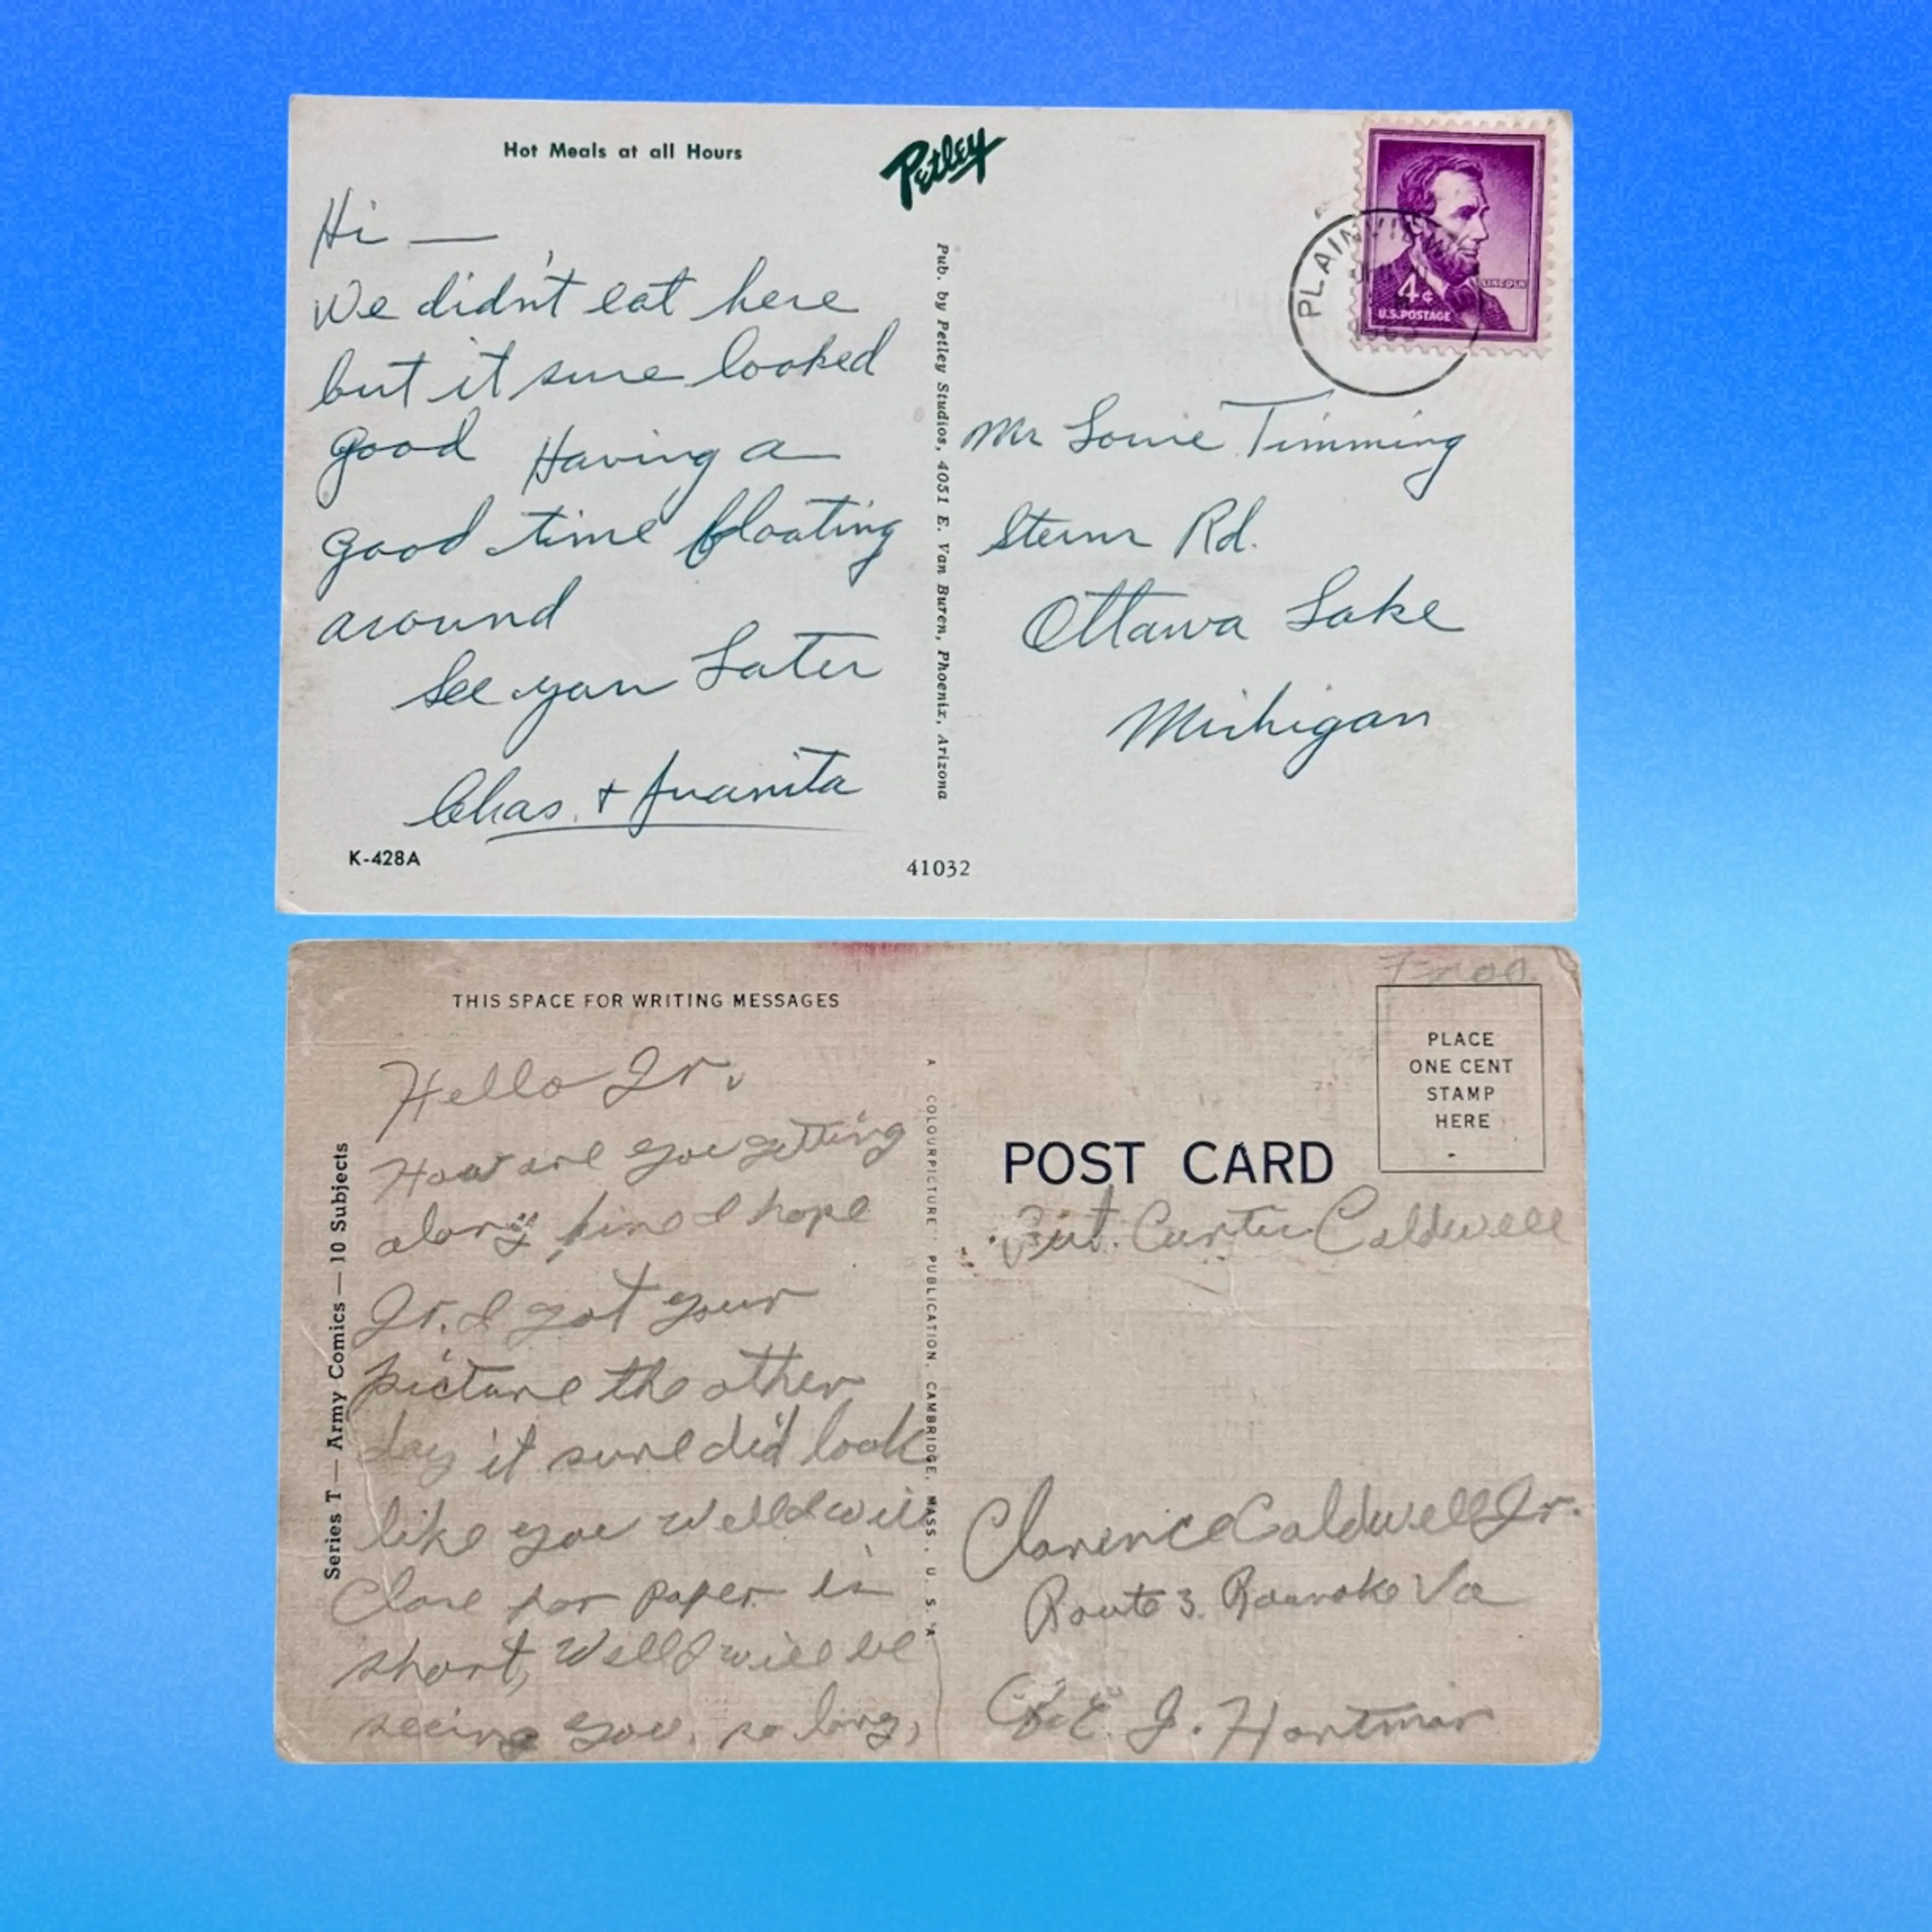 Hot Meals at all Hours
Petley
Hi —
We didn't eat here
but it sure looked
good Having a
good time floating
around
See you Later
Chas. + Juanita
K-428A
Pub. by Petley Studios, 4051 E. Van Buren, Phoenix, Arizona
41032
PLAINVIEW
LINCOLN
4¢
U.S. POSTAGE
Mr Louie Timming
Sterns Rd.
Ottawa Lake
Michigan
THIS SPACE FOR WRITING MESSAGES
Series T — Army Comics — 10 Subjects
Hello Jr.,
How are you getting
along fine I hope
Jr. I got your
picture the other
day it sure did look
like you Well I will
Close for paper is
short, Well I will be
seeing you, so long,
A COLOURPICTURE PUBLICATION, CAMBRIDGE, MASS., U. S. A.
PLACE
ONE CENT
STAMP
HERE
POST CARD
Pvt. Curtis Caldwell
Clarence Caldwell Jr.
Route 3. Roanoke Va
J. Hartman